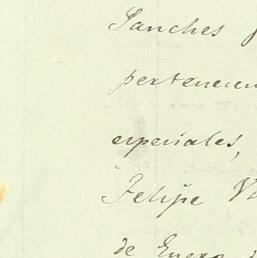 Sanches
pertenecien
especiales,
Felipe V
de Enero